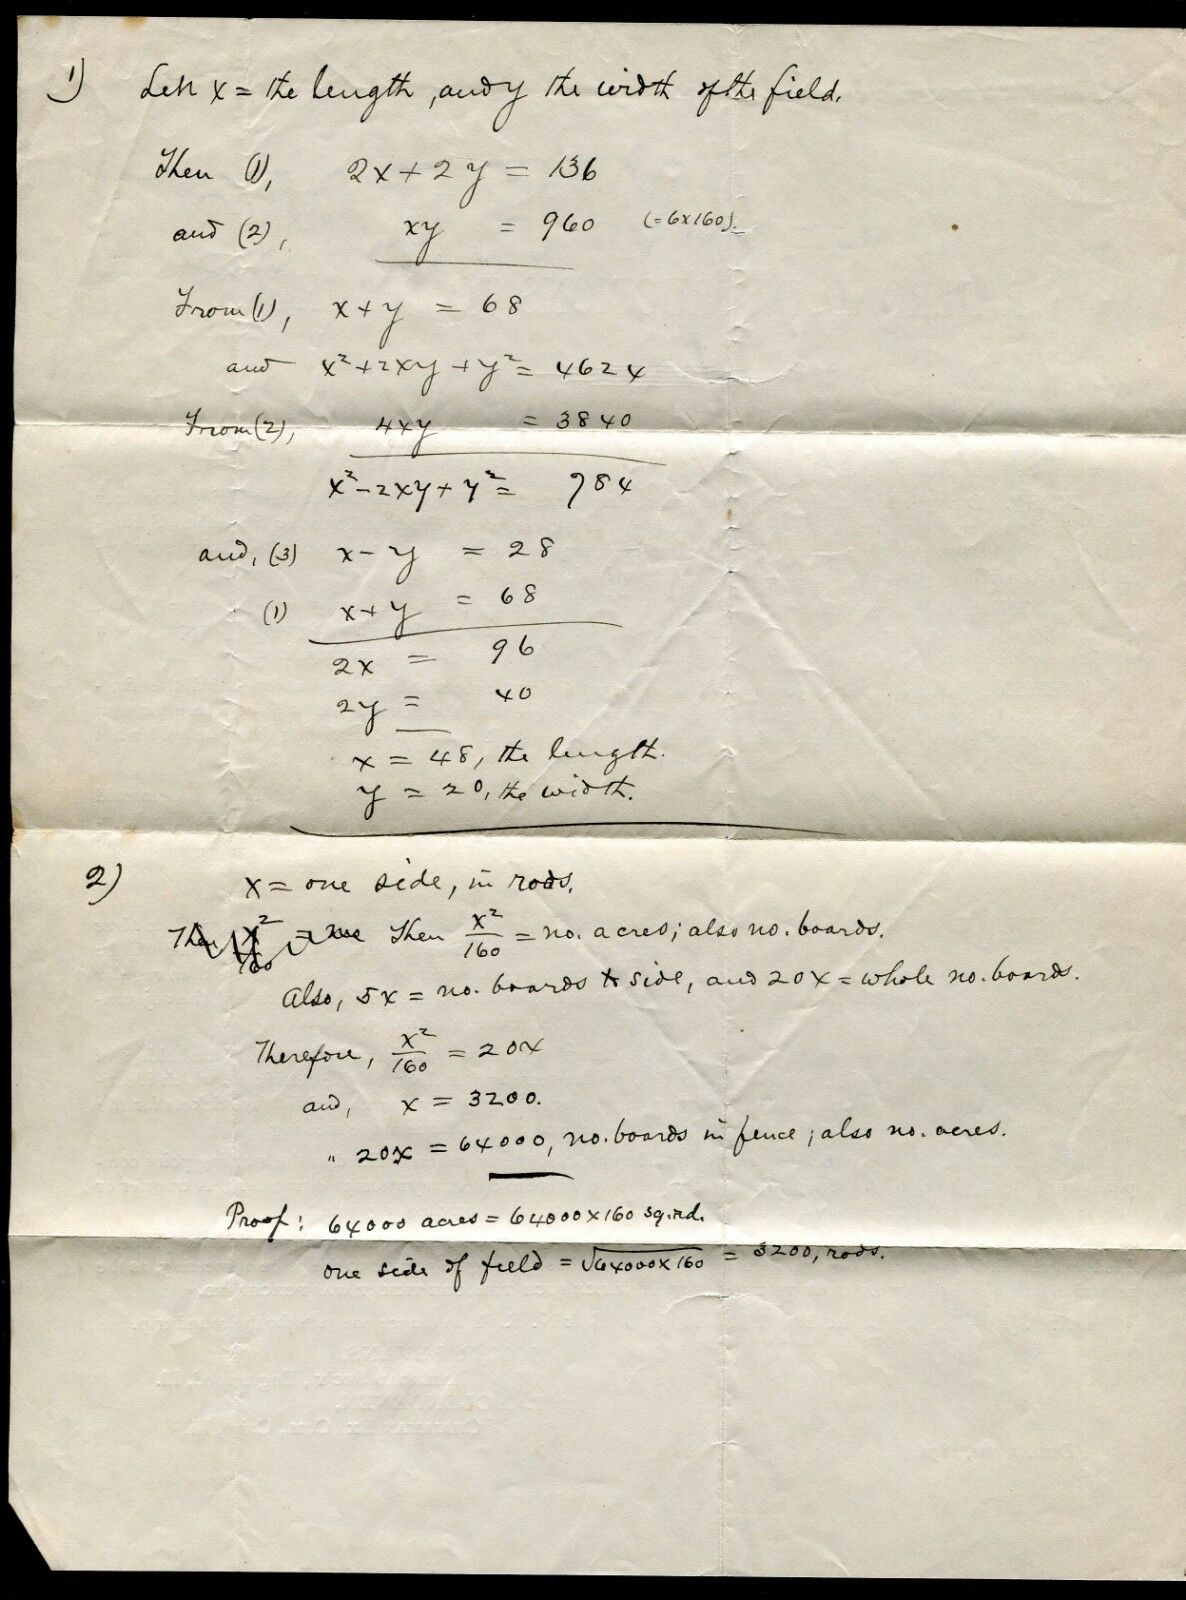 1) Let x = the length, and y the width of the field.
Then (1), 2x + 2y = 136
and (2), xy = 960 (=6x160).
From (1), x + y = 68
and x² + 2xy + y² = 4624
From (2), 4xy = 3840
x² - 2xy + y² = 784
and, (3) x - y = 28
(1) x + y = 68
2x = 96
2y = 40
x = 48, the length.
y = 20, the width.
2) x = one side, in rods.
Then x²/160 = no. acres; also no. boards.
Also, 5x = no. boards to side, and 20x = whole no. boards.
Therefore, x²/160 = 20x
and, x = 3200.
" 20x = 64000, no. boards in fence; also no. acres.
Proof: 64000 acres = 64000 x 160 sq. rd.
one side of field = √64000 x 160 = 3200, rods.